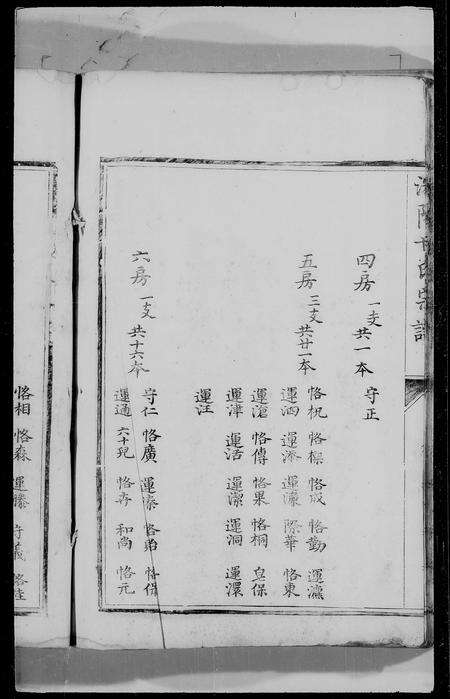 四房 一支 共一本 守正
五房 三支 共廿一本
恪杌 恪樑 恪成 恪勤 運瀛
運泗 運添 運濂 際華 恪東
運滄 恪傳 恪果 恪桐 皇保
運津 運活 運潔 運洞 運濃
運汪
六房 一支 共十六本
守仁 恪廣 運泰 恪弟 恪保
運通 六十兒 恪存 和尚 恪元
恪相 恪森 運滕 守義